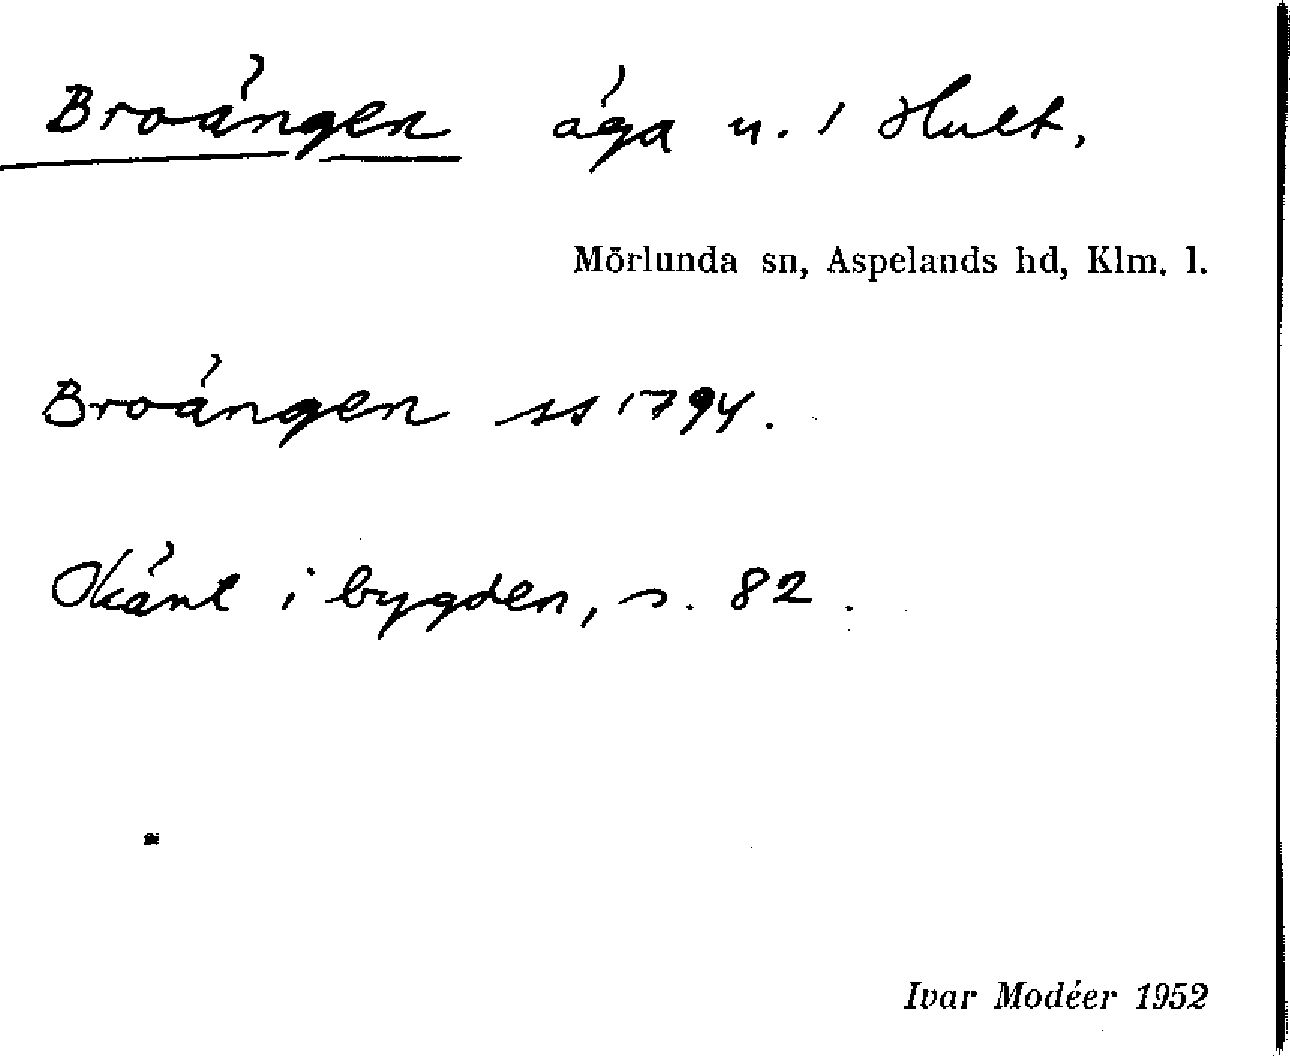 Broängen äga u. 1 Hult,
Mörlunda sn, Aspelands hd, Klm. l.
Broängen ss 1794.
Okänt i bygden, s. 82.
Ivar Modéer 1952